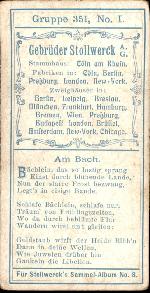 Gruppe 351, No. I.
Gebrüder Stollwerck
Stammhaus: Cöln am Rhein.
Fabriken in: Cöln, Berlin,
Preßburg, London, New-York.
Zweighäuser in:
Berlin, Leipzig, Breslau,
München, Frankfurt, Hamburg,
Bremen, Wien, Preßburg,
Budapest, London, Brüssel,
Amsterdam, New-York, Chicago.
Am Bach.
Bächlein, das so lustig sprang
Einst durch blumende Lande,
Nun der starre Frost bezwang,
Legt's in eisige Bande.
Schlafe Bächlein, schlafe nur,
Träum' von Frühlingszeiten,
Wo du durch belebte Flur
Wandern wirst und gleiten;
Goldstaub wirft der Heide Blüh'n
Dann in deine Wellen,
Wie Juwelen drüber hin
Gaukeln die Libellen.
Für Stollwerck's Sammel-Album No. 8.